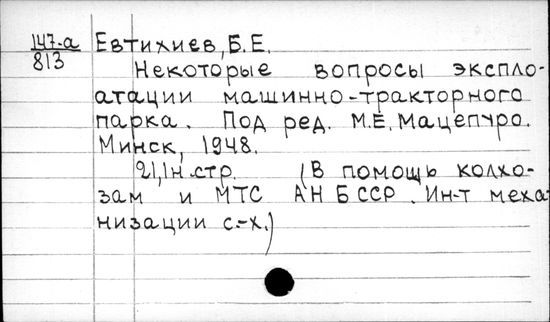 147-а Евтихиев, Б.Е.
813
Некоторые вопросы экспло-
атации машинно-тракторного
парка. Под ред. М.Е. Мацепуро.
Минск, 1948.
21,1н.стр. (В помощь колхо-
зам и МТС АН БССР. Ин-т меха-
низации с.-х.)